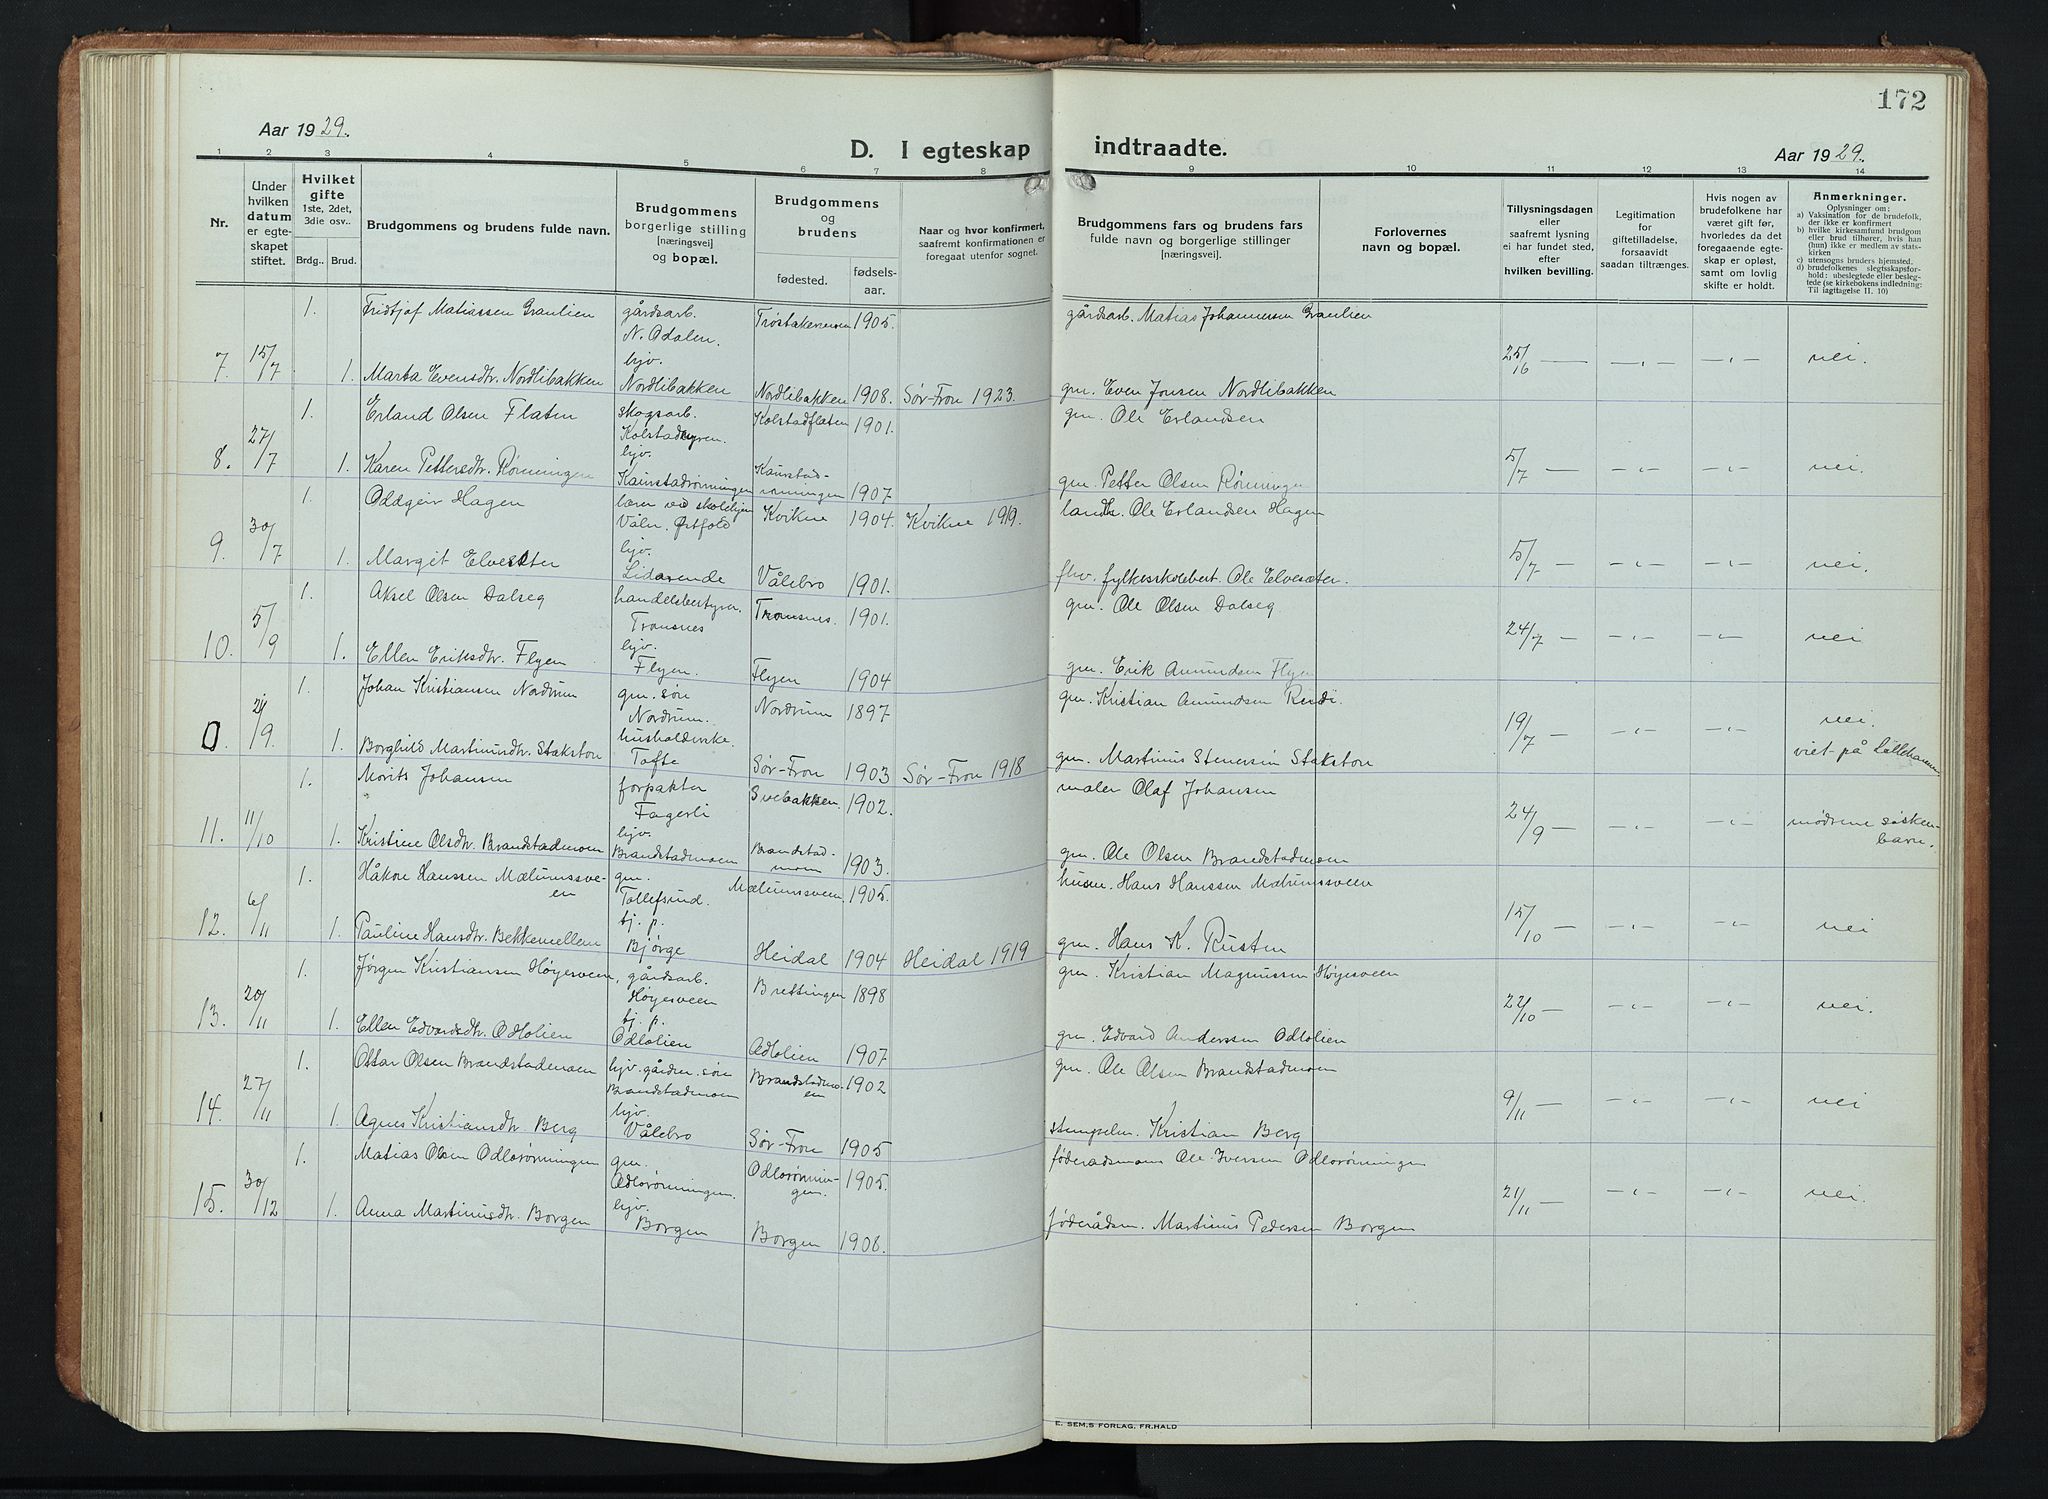 172
Aar 1929.
D. I egteskap indtraadte.
Aar 1929.
1 2 3 4 5 6 7 8 9 10 11 12 13 14
Nr.
Under hvilken datum er egteskapet stiftet.
Hvilket gifte 1ste, 2det, 3die osv..
Brdg.. Brud.
Brudgommens og brudens fulde navn.
Brudgommens borgerlige stilling [næringsvei] og bopæl.
Brudgommens og brudens
fødested. fødsels-aar.
Naar og hvor konfirmert, saafremt konfirmationen er foregaat utenfor sognet.
Brudgommens fars og brudens fars fulde navn og borgerlige stillinger [næringsvei].
Forlovernes navn og bopæl.
Tillysningsdagen eller saafremt lysning ei har fundet sted, efter hvilken bevilling.
Legitimation for giftetilladelse, forsaavidt saadan tiltrænges.
Hvis nogen av brudefolkene har været gift før, hvorledes da det foregaaende egteskap er opløst, samt om lovlig skifte er holdt.
Anmerkninger.
Oplysninger om:
a) Vaksination for de brudefolk, der ikke er konfirmert
b) hvilke kirkesamfund brudgom eller brud tilhører, hvis han (hun) ikke er medlem av statskirken
c) utensogns bruders hjemsted.
d) brudefolkenes slegtsskapsforhold: ubeslegtede eller beslegtede (se kirkebokens indledning: Til iagttagelse II. 10)
1. Fridtjof Matiassen Graulien gårdsarb. N. Odalen. 1905. gårdsarb. Matias Johannersen Graulien
7. 15/7 1. Marta Evensdtr. Nordlibakken hjv. Nordlibakken Nordlibakken 1908. Sør-Fron 1923. gm. Even Jonsen Nordlibakken 25/6 — —„— —„— nei.
1. Erland Olsen Flaten skogsarb. Kolstadflaten 1901. gm. Ole Erlandsen
8. 27/7 1. Karen Pettersdtr. Rønningen hjv. 1907. gm. Petter Olsen Rønningen 5/7 — —„— —„— nei.
1. Oddgeir Hagen lærer ved skolehjem Våler Østfold Kvikne 1904. Kvikne 1919. landh. Ole Erlandsen Hagen
9. 30/7 1. Margit Elveseter hjv. Lidarende Vålebro 1901. fhv. fylkesskolebest. Ole Elvesæter. 5/7 — —„— —„— nei.
1. Aksel Olsen Dalseg handelsbestyrer. Tromsnes Tromsnes. 1901. gm. Ole Olsen Dalseg
10. 5/9 1. Ellen Eriksdtr. Flyen hjv. Flyen. Flyen 1904 gm. Erik Amundsen Flyen 24/7 — —„— —„— nei
1. Johan Kristiansen Nordrum gm. søn Nordrum. Nordrum 1897 gm. Kristian Amundsen
0. 21/9. 1. Borghild Martinusdtr. Stokston husholderske. Tofte Sør-Fron 1903 Sør-Fron 1918 gm. Martinus Stenersen Stakston 19/7 — —„— —„— nei. viet på Lillehammer
1. Morits Johansen forpakter Fagerli Svebakken. 1902. maler Olaf Johansen
11. 11/10 1. Kristine Olsdtr. Brandstadmoen hjv. Brandstadmoen Brandstad-moen 1903. gm. Ole Olsen Brandstadmoen 24/9 — —„— —„— mødrene søsken-barn.
1. Håkon Hanssen Mælumssve-en gm. Tollefsrud. Mælumsveen. 1905. husm. Hans Hanssen Mælumssveen
12. 6/11 1. Pauline Hansdtr. Bekkemellem tj. p. Bjørge Heidal 1904 Heidal 1919 gm. Hans K. Rusten 15/10 — —„— —„— nei
1. Jørgen Kristiansen Høyesveen, gårdsarb. Høyesveen Brettingen 1898 gm. Kristian Magnussen Høyesveen
13. 20/11 1. Ellen Edvardsdtr. Odlolien tj. p. Odlolien Odlolien 1907 gm. Edvard Anderssen Odlolien 22/10 — —„— —„— nei.
1. Ottar Olsen Brandstadmoen hjv. gårdm. søn Brandstadmoen Brandstadmo-en 1902 gm. Ole Olsen Brandstadmoen
14. 27/11 1. Agnes Kristiansdtr. Berg hjv. Vålebro Sør-Fron 1905 Kristian Berg 9/11 — —„— —„— nei
1. Matias Olsen Odlorønningen gm. Odlorønningen. Odlorønnin-gen. 1905. føderadsmann Ole Iversen Odlorønningen
15. 30/12 1. Anna Martinusdtr. Borgen hjv. Borgen Borgen 1908. føderådsm. Martinus Pedersen Borgen 21/11 — —„— —„— nei.
E. SEM.S FORLAG, FR.HALD